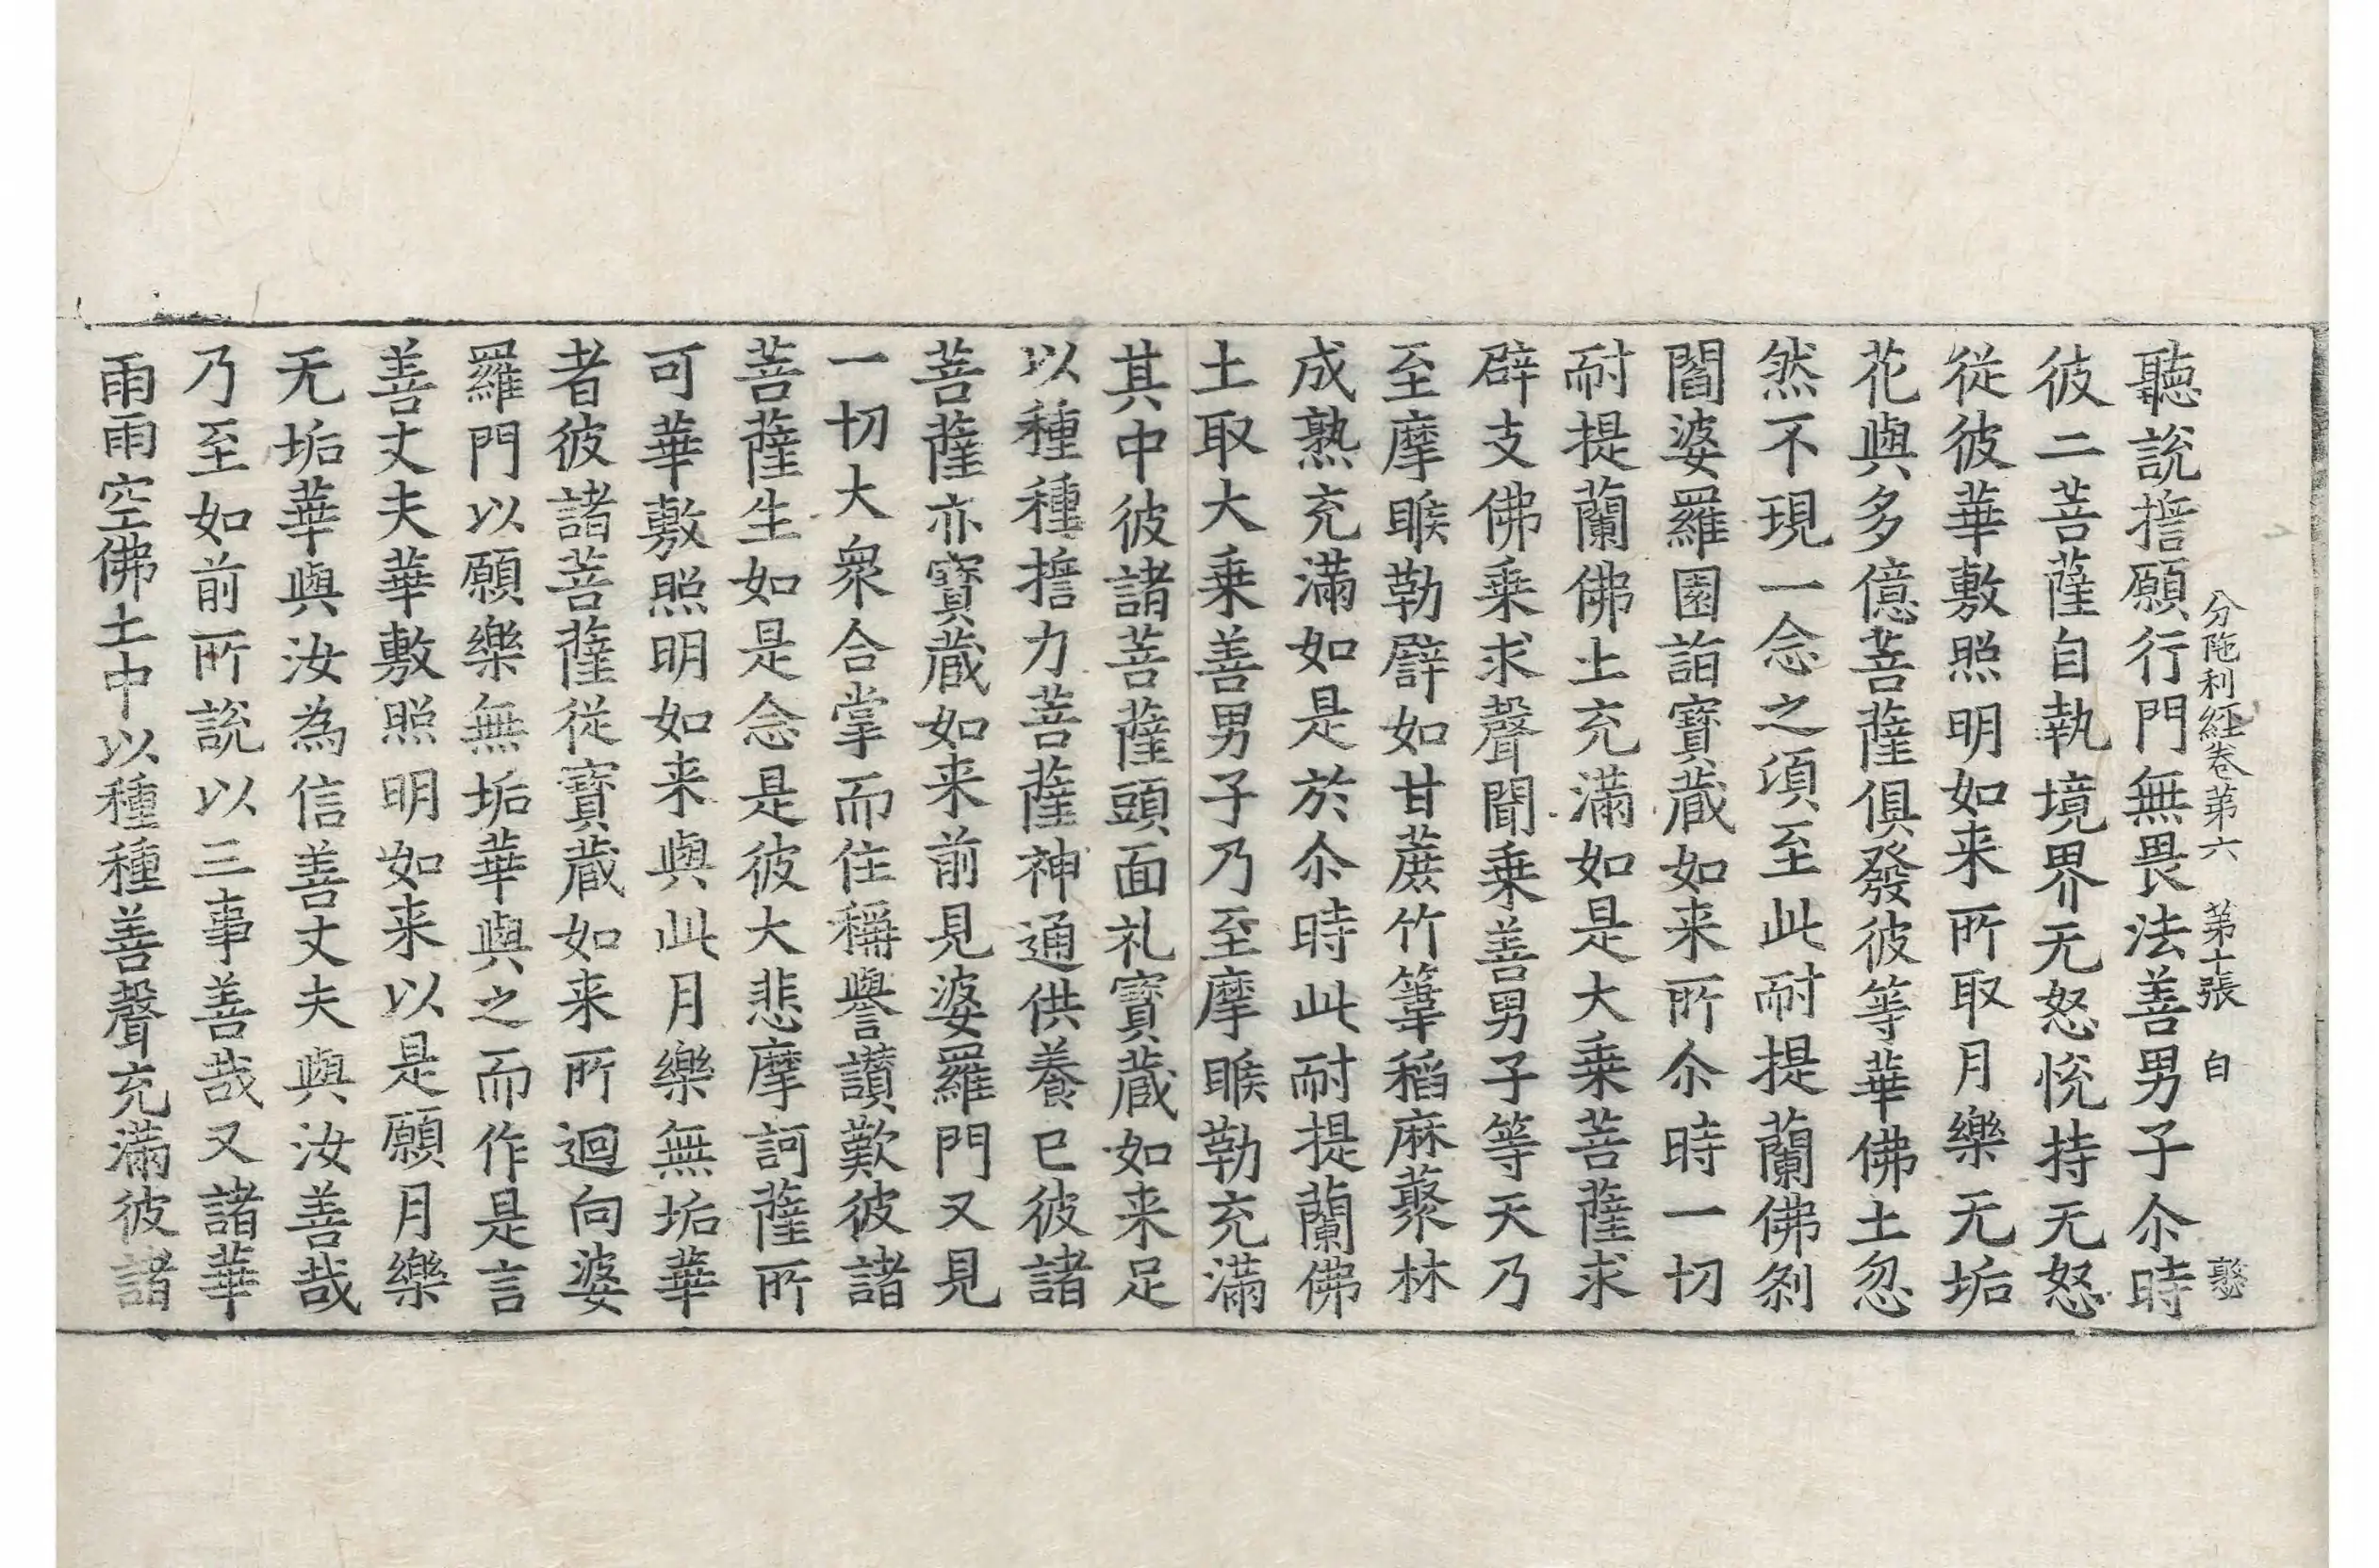 分陁利經卷第六 第十張 白 憨
聽説擔願行門無畏法善男子尒時
彼二菩薩自執境界无怒恱持无怒
從彼華敷照明如来所取月樂无垢
花與多億菩薩俱發彼等華佛土忽
然不現一念之湏至此耐提蘭佛刹
閻婆羅園詣寶蔵如来所尒時一切
耐提蘭佛土充滿如是大乗菩薩求
辟支佛乗求聲聞乗善男子等天乃
至摩睺勒譬如甘蔗竹葦稻麻藂林
成熟充滿如是於尒時此耐提蘭佛
土取大乗善男子乃至摩睺勒充滿
其中彼諸菩薩頭面礼寶蔵如来足
以種種擔力菩薩神通供養已彼諸
菩薩亦寶蔵如来前見婆羅門又見
一切大衆合掌而住稱譽讃歎彼諸
菩薩生如是念是彼大悲摩訶薩所
可華敷照明如来與此月樂無垢華
者彼諸菩薩從寶蔵如来所迴向婆
羅門以願樂無垢華與之而作是言
善丈夫華敷照明如来以是願月樂
无垢華與汝為信善丈夫與汝善哉
乃至如前所説以三事善哉又諸華
雨雨空佛土中以種種善聲充滿彼諸